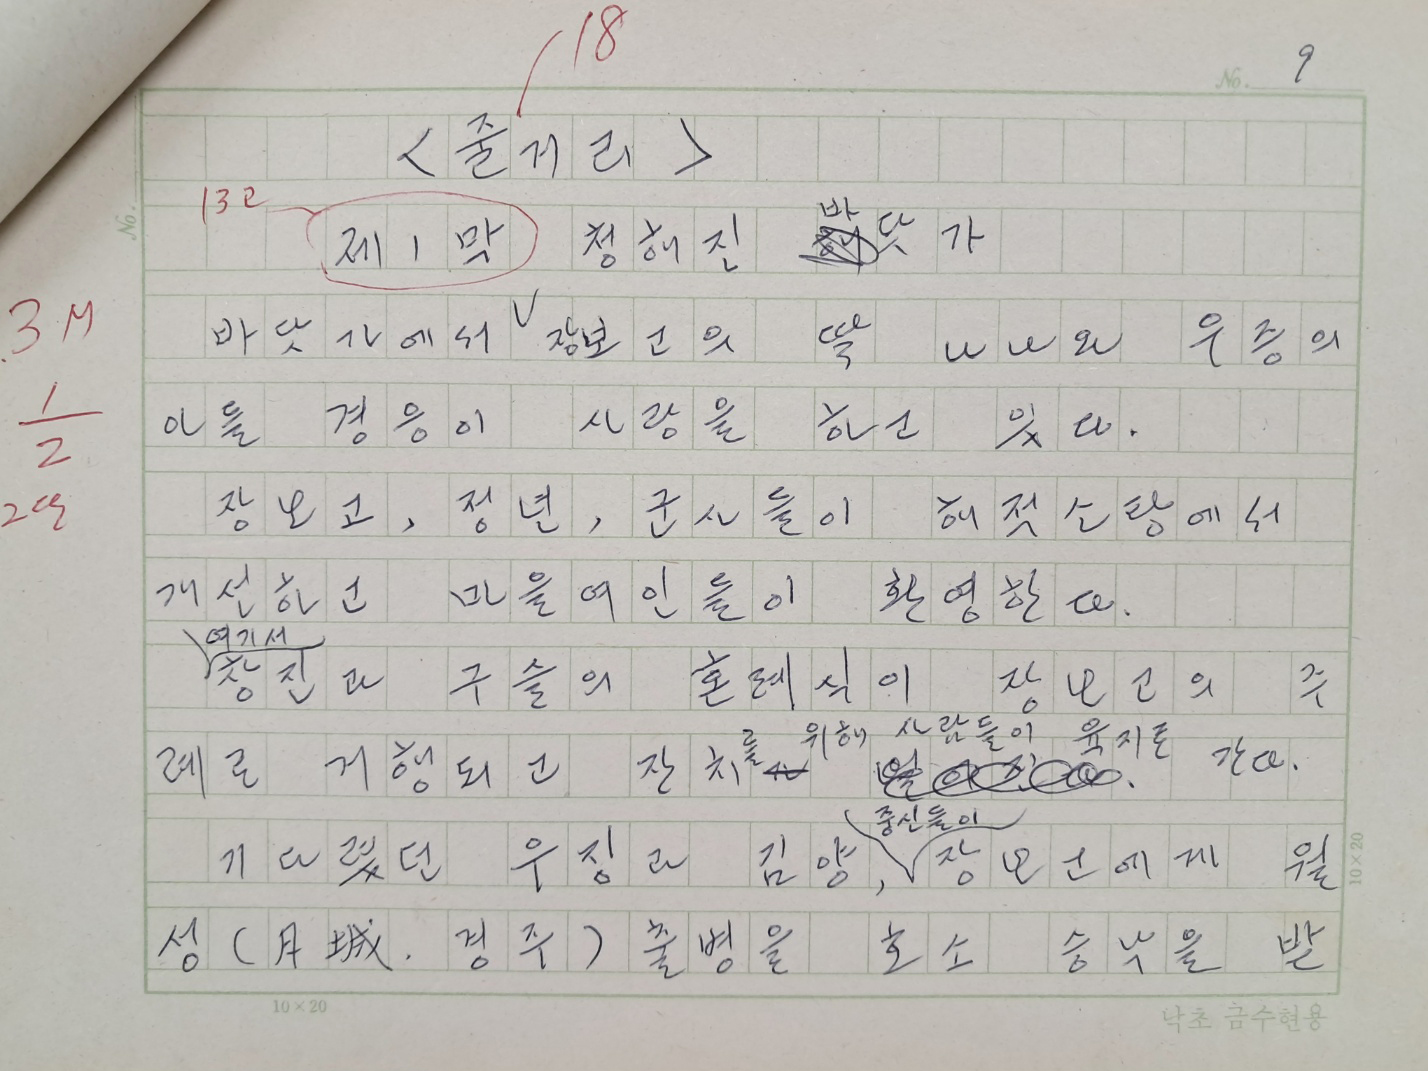 18
No. 9
<줄거리>
13고
제1막 청해진 바닷가
No.
바닷가에서 장보고의 딸 나나와 우증의
3M
아들 경응이 사랑을 하고 있다.
1/2
장보고, 정년, 군사들이 해적소탕에서
개선하고 마을여인들이 환영한다.
여기서
창진과 구슬의 혼례식이 장보고의 주
를 위해 사람들이 육지로
례로 거행되고 잔치 간다.
중신들이
기다렸던 우징과 김양, 장보고에게 월
성(月城. 경주)출병을 호소 승낙을 받
10×20
10×20
낙초 금수현용